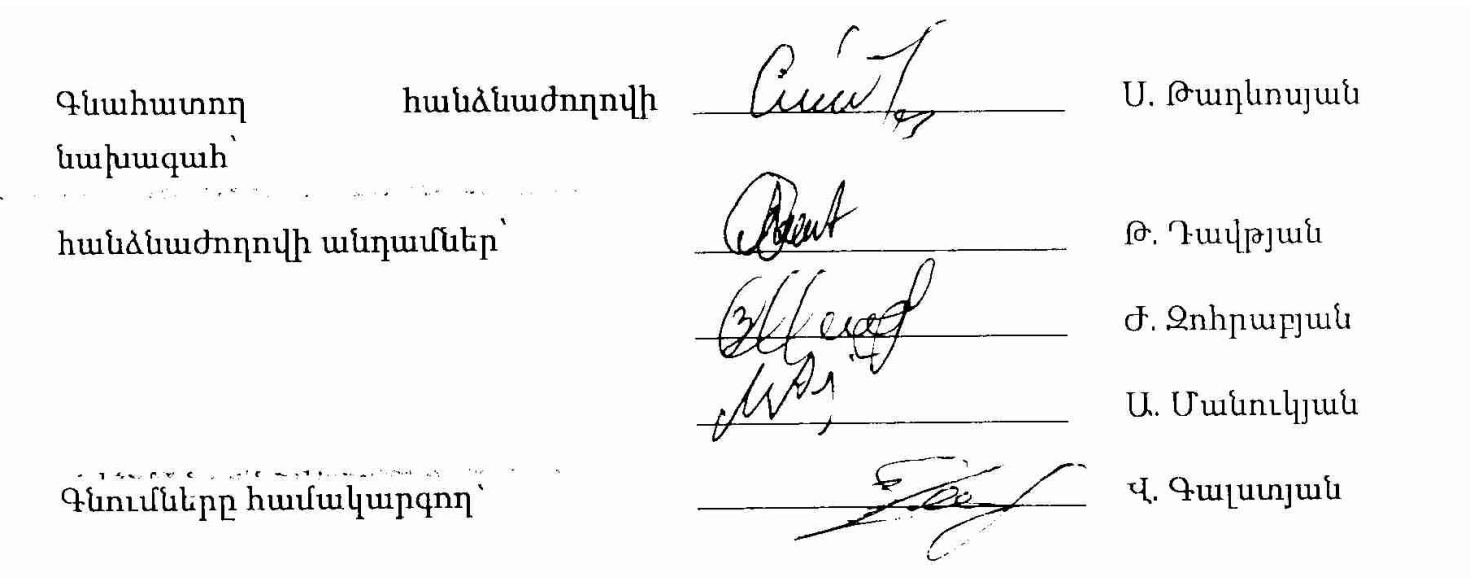 Գնահատող հանձնաժողովի Ս. Թադևոսյան
նախագահ՝
հանձնաժողովի անդամներ՝ Թ. Դավթյան
Ժ. Զոհրաբյան
Ա. Մանուկյան
Գնումները համակարգող՝ Վ. Գալստյան